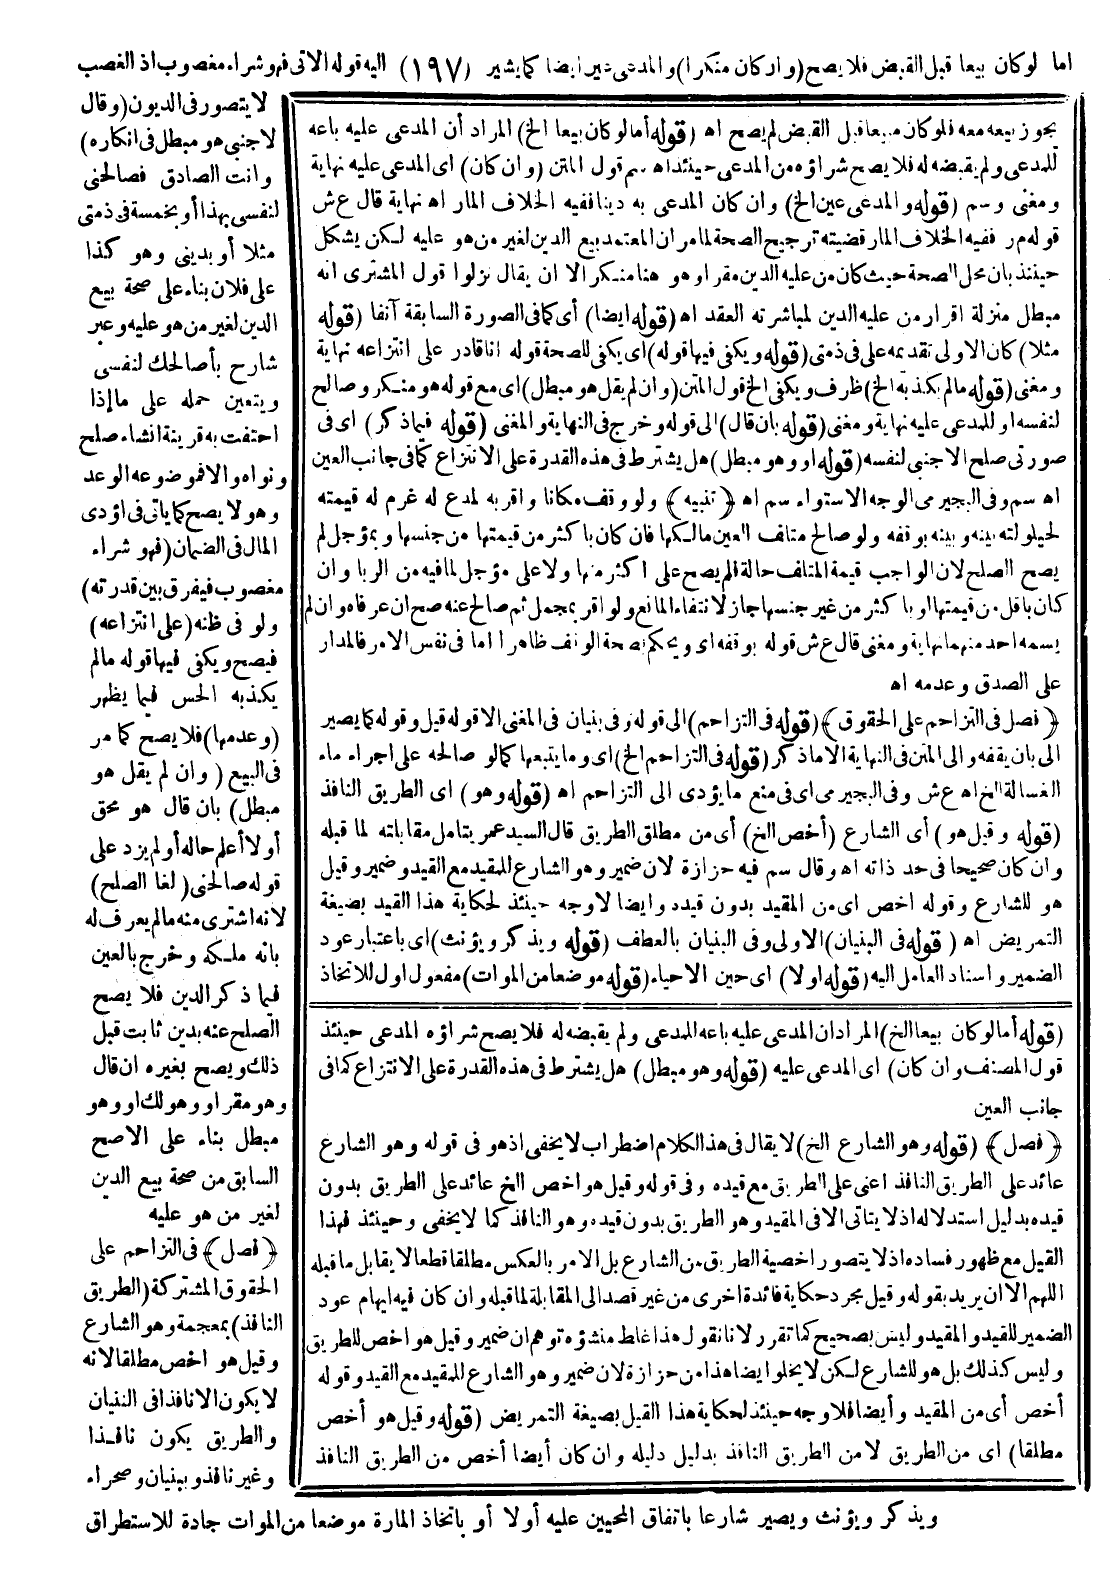 اما لو كان بيعا قبل القبض فلا يصح (وان كان منكرا) والمدعى دين ايضا كما يشير (١٩٧) اليه قوله الاتى فهو شراء مغصوب اذ الغصب
لا يتصور فى الديون (وقال
لاجنبى هو مبطل فى انكاره)
وانت الصادق فصالحنى
لنفسى بهذا أو بخمسة فى ذمتى
مثلا أو بدينى وهو كذا
على فلان بناء على صحة بيع
الدين لغير من هو عليه وعبر
شارح بأصالحك لنفسى
ويتعين حمله على ما إذا
احتفت به قرينة انشاء صلح
ونواه والا فموضوعه الوعد
وهو لا يصح كما ياتى فى اؤدى
المال فى الضمان (فهو شراء
مغصوب فيفرق بين قدرته)
ولو فى ظنه (على انتزاعه)
فيصح ويكفى فيها قوله مالم
يكذبه الحس فيما يظهر
(وعدمها) فلا يصح كما مر
فى البيع (وان لم يقل هو
مبطل) بان قال هو محق
أو لا أعلم حاله أو لم يزد على
قوله صالحنى (لغا الصلح)
لانه اشترى منه مالم يعرف له
بانه ملكه وخرج بالعين
فيما ذكر الدين فلا يصح
الصلح عنه بدين ثابت قبل
ذلك ويصح بغيره ان قال
وهو مقر او وهو لك او وهو
مبطل بناء على الاصح
السابق من صحة بيع الدين
لغير من هو عليه
﴿فصل﴾ فى التزاحم على
الحقوق المشتركة (الطريق
النافذ) بمعجمة وهو الشارع
وقيل هو اخص مطلقا لانه
لا يكون الا نافذا فى البنيان
والطريق يكون نافذا
وغير نافذ وببنيان وصحراء
ويذكر ويؤنث ويصير شارعا باتفاق المحيين عليه أولا أو باتخاذ المارة موضعا من الموات جادة للاستطراق
يجوز بيعه معه فلو كان مبيعا قبل القبض لم يصح اه (قوله أما لو كان بيعا الخ) المراد أن المدعى عليه باعه
للمدعى ولم يقبضه له فلا يصح شراؤه من المدعى حينئذ اه سم قول المتن (وان كان) اى المدعى عليه نهاية
ومغنى وسم (قوله والمدعى عين الخ) وان كان المدعى به دينا ففيه الخلاف المار اه نهاية قال ع ش
قوله م ر ففيه الخلاف المار قضيته ترجيح الصحة لما مر ان المعتمد بيع الدين لغير من هو عليه لكن يشكل
حينئذ بان محل الصحة حيث كان من عليه الدين مقرا وهو هنا منكر الا ان يقال نزلوا قول المشترى انه
مبطل منزلة اقرار من عليه الدين لمباشرته العقد اه (قوله ايضا) أى كما فى الصورة السابقة آنفا (قوله
مثلا) كان الاولى تقديمه على فى ذمتى (قوله ويكفى فيها قوله) اى يكفى للصحة قوله انا قادر على انتزاعه نهاية
ومغنى (قوله مالم يكذبه الخ) ظرف ويكفى الخ قول المتن (وان لم يقل هو مبطل) اى مع قوله هو منكر وصالح
لنفسه او للمدعى عليه نهاية ومغنى (قوله بان قال) الى قوله وخرج فى النهاية والمغنى (قوله فيما ذكر) اى فى
صورتى صلح الاجنبى لنفسه (قوله او وهو مبطل) هل يشترط فى هذه القدرة على الانتزاع كما فى جانب العين
اه سم وفى البجيرمى الوجه الاستواء سم اه ﴿تنبيه﴾ ولو وقف مكانا واقر به لمدع له غرم له قيمته
لحيلولته بينه وبينه بوقفه ولو صالح متلف العين مالكها فان كان باكثر من قيمتها من جنسها وبمؤجل لم
يصح الصلح لان الواجب قيمة المتلف حالة فلم يصح على اكثر منها ولا على مؤجل لما فيه من الربا وان
كان باقل من قيمتها او باكثر من غير جنسها جاز لانتفاء المانع ولو اقر بمجمل ثم صالح عنه صح ان عرفاه وان لم
يسمه احد منهما نهاية ومغنى قال ع ش قوله بوقفه اى ويحكم بصحة الوقف ظاهرا اما فى نفس الامر فالمدار
على الصدق وعدمه اه
﴿فصل فى التزاحم على الحقوق﴾ (قوله فى التزاحم) الى قوله وفى بنيان فى المغنى الا قوله قيل وقوله كما يصير
الى بان يقفه والى المتن فى النهاية الا ماذكر (قوله فى التزاحم الخ) اى وما يتبعها كما لو صالحه على اجراء ماء
الغسالة الخ اه ع ش وفى البجيرمى اى فى منع ما يؤدى الى التزاحم اه (قوله وهو) اى الطريق النافذ
(قوله وقيل هو) أى الشارع (أخص الخ) أى من مطلق الطريق قال السيد عمر يتامل مقابلته لما قبله
وان كان صحيحا فى حد ذاته اه وقال سم فيه حزازة لان ضمير وهو الشارع للمقيد مع القيد وضمير وقيل
هو للشارع وقوله اخص اى من المقيد بدون قيده وايضا لا وجه حينئذ لحكاية هذا القيد بصيغة
التمريض اه (قوله فى البنيان) الاولى وفى البنيان بالعطف (قوله ويذكر ويؤنث) اى باعتبار عود
الضمير واسناد العامل اليه (قوله اولا) اى حين الاحياء (قوله موضعا من الموات) مفعول اول للاتخاذ
(قوله أما لو كان بيعا الخ) المراد ان المدعى عليه باعه للمدعى ولم يقبضه له فلا يصح شراؤه المدعى حينئذ
قول المصنف وان كان) اى المدعى عليه (قوله وهو مبطل) هل يشترط فى هذه القدرة على الانتزاع كما فى
جانب العين
﴿فصل﴾ (قوله وهو الشارع الخ) لا يقال فى هذا الكلام اضطراب لا يخفى اذ هو فى قوله وهو الشارع
عائد على الطريق النافذ اعنى على الطريق مع قيده وفى قوله وقيل هو اخص الخ عائد على الطريق بدون
قيده بدليل استدلاله اذ لا يتاتى الا فى المقيد وهو الطريق بدون قيده وهو النافذ كما لا يخفى وحينئذ فهذا
القيل مع ظهور فساده اذ لا يتصور اخصية الطريق من الشارع بل الامر بالعكس مطلقا قطعا لا يقابل ما قبله
اللهم الا ان يريد بقوله وقيل مجرد حكاية فائدة اخرى من غير قصد الى المقابلة لما قبله وان كان فيه ايهام عود
الضمير للقيد والمقيد وليس بصحيح كما تقرر لانا نقول هذا غلط منشؤه توهم ان ضمير وقيل هو اخص للطريق
وليس كذلك بل هو للشارع لكن لا يخلوا ايضا هذا من حزازة لان ضمير وهو الشارع للمقيد مع القيد وقوله
أخص أى من المقيد وأيضا فلا وجه حينئذ لحكاية هذا القيل بصيغة التمريض (قوله وقيل هو أخص
مطلقا) اى من الطريق لا من الطريق النافذ بدليل دليله وان كان أيضا أخص من الطريق النافذ